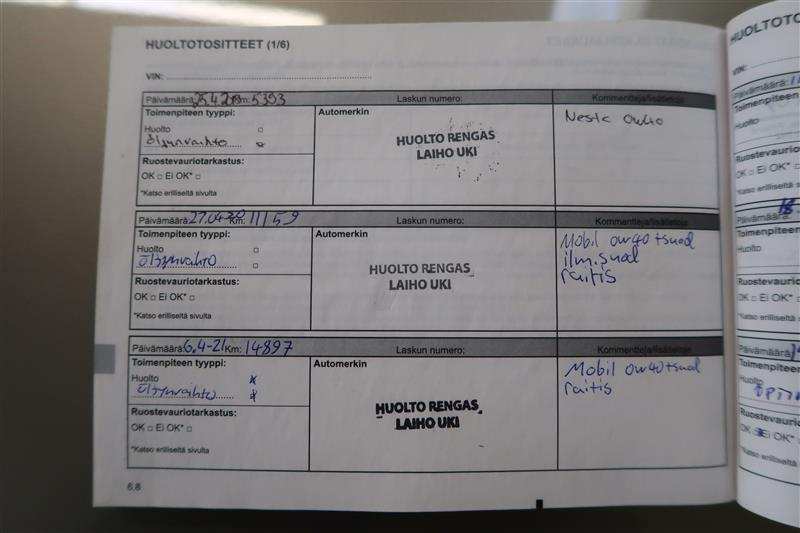 HUOLTOTOSITTEET (1/6)
VIN:
Päivämäärä: Km: 5393 Laskun numero: Kommentteja/lisätietoja
Toimenpiteen tyyppi: Automerkin
Huolto □
Öljynvaihto
HUOLTO RENGAS
LAIHO UKI
Neste 0w40
Ruostevauriotarkastus:
OK □ Ei OK* □
*Katso erilliseltä sivulta
Päivämäärä: Km: 11159 Laskun numero: Kommentteja/lisätietoja
Toimenpiteen tyyppi: Automerkin
Huolto □
Öljynvaihto □
HUOLTO RENGAS
LAIHO UKI
Mobil 0w40 + suod
ilm.suod
raitis
Ruostevauriotarkastus:
OK □ Ei OK* □
*Katso erilliseltä sivulta
Päivämäärä: 6.4-21 Km: 14897 Laskun numero: Kommentteja/lisätietoja
Toimenpiteen tyyppi: Automerkin
Huolto x
Öljynvaihto x
HUOLTO RENGAS
LAIHO UKI
Mobil 0w40 + suod
raitis
Ruostevauriotarkastus:
OK □ Ei OK* □
*Katso erilliseltä sivulta
6.6
VIN:
Päivämäärä:
Toimenpiteen
Huolto
Ruostevauriotar
OK □ Ei OK* □
*Katso erilliseltä
Päivämäärä: 18
Toimenpiteen
Huolto
Ruostevauriota
OK □ Ei OK* □
*Katso erilliseltä
Päivämäärä
Toimenpiteen
Huolto
Ruostevauriot
Ei OK* □
*Katso erilliselt